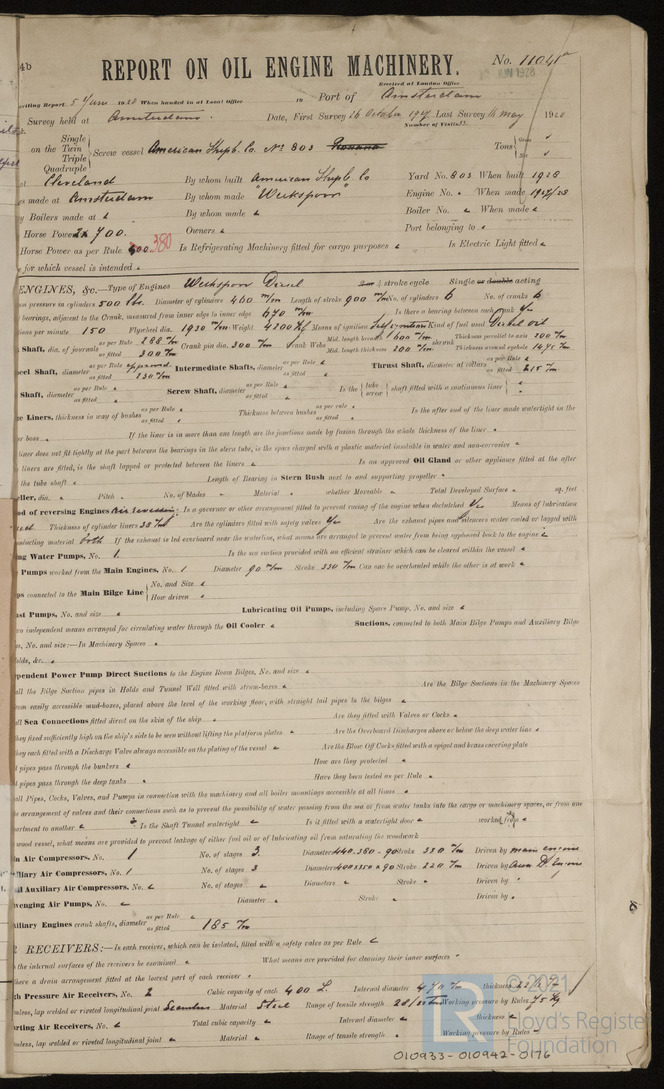 4b
REPORT ON OIL ENGINE MACHINERY.
No. 11045
Received at London Office
writing Report 5 June 1928 When handed in at Local Office 19 Port of Amsterdam
Survey held at Amsterdam. Date, First Survey 26 October 1927 Last Survey 11 May 1928
Number of Visits
Single
on the Twin
Triple
Quadruple
Screw vessel American Shipb. Co. No 803
Tons
Gross
at Cleveland By whom built American Shipb. Co Yard No. 803 When built 1928
es made at Amsterdam By whom made "Werkspoor" Engine No. When made 1927/28
y Boilers made at By whom made Boiler No. When made
Horse Power 700. Owners Port belonging to
Horse Power as per Rule 380 Is Refrigerating Machinery fitted for cargo purposes Is Electric Light fitted
e for which vessel is intended
ENGINES, &c.—Type of Engines Werkspoor Diesel 2 or 4 stroke cycle Single or double acting
pressure in cylinders 500 lbs. Diameter of cylinders 460 m/m Length of stroke 900 m/m No. of cylinders 6 No. of cranks 6
bearings, adjacent to the Crank, measured from inner edge to inner edge 670 m/m Is there a bearing between each crank
tions per minute 150 Flywheel dia. 1930 m/m Weight 4200 Kg Means of ignition Kind of fuel used Diesel oil
Shaft, dia. of journals as per Rule as fitted 300 m/m Crank pin dia. 300 m/m Crank Webs Mid. length breadth 600 m/m Mid. length thickness 200 m/m shrunk Thickness parallel to axis 200 m/m Thickness around eyehole
eel Shaft, diameter as per Rule approved as fitted Intermediate Shafts, diameter as per Rule as fitted Thrust Shaft, diameter at collars as per Rule as fitted 215 m/m
Shaft, diameter as per Rule as fitted Screw Shaft, diameter as per Rule as fitted Is the tube screw shaft fitted with a continuous liner
ze Liners, thickness in way of bushes as per Rule as fitted Thickness between bushes as per rule as fitted Is the after end of the liner made watertight in the
r boss If the liner is in more than one length are the junctions made by fusion through the whole thickness of the liner
liner does not fit tightly at the part between the bearings in the stern tube, is the space charged with a plastic material insoluble in water and non-corrosive
liners are fitted, is the shaft lapped or protected between the liners Is an approved Oil Gland or other appliance fitted at the after
the tube shaft Length of Bearing in Stern Bush next to and supporting propeller
eller, dia. Pitch No. of blades Material whether Moveable Total Developed Surface sq. feet
od of reversing Engines Air reversing Is a governor or other arrangement fitted to prevent racing of the engine when declutched Means of lubrication
Thickness of cylinder liners 38 m/m Are the cylinders fitted with safety valves Are the exhaust pipes and silencers water cooled or lagged with
onducting material both If the exhaust is led overboard near the waterline, what means are arranged to prevent water from being syphoned back to the engine
ng Water Pumps, No. 1. Is the sea suction provided with an efficient strainer which can be cleared within the vessel
Pumps worked from the Main Engines, No. 1 Diameter 90 m/m Stroke 330 m/m Can one be overhauled while the other is at work
ps connected to the Main Bilge Line No. and Size How driven
ast Pumps, No. and size Lubricating Oil Pumps, including Spare Pump, No. and size
independent means arranged for circulating water through the Oil Cooler Suctions, connected to both Main Bilge Pumps and Auxiliary Bilge
s, No. and size:—In Machinery Spaces
olds, &c.
pendent Power Pump Direct Suctions to the Engine Room Bilges, No. and size
all the Bilge Suction pipes in Holds and Tunnel Well fitted with strum-boxes Are the Bilge Suctions in the Machinery Spaces
rom easily accessible mud-boxes, placed above the level of the working floor, with straight tail pipes to the bilges
ll Sea Connections fitted direct on the skin of the ship Are they fitted with Valves or Cocks
hey fixed sufficiently high on the ship's side to be seen without lifting the platform plates Are the Overboard Discharges above or below the deep water line
hey each fitted with a Discharge Valve always accessible on the plating of the vessel Are the Blow Off Cocks fitted with a spigot and brass covering plate
t pipes pass through the bunkers How are they protected
t pipes pass through the deep tanks Have they been tested as per Rule
all Pipes, Cocks, Valves, and Pumps in connection with the machinery and all boiler mountings accessible at all times
e arrangement of valves and their connections such as to prevent the possibility of water passing from the sea or from water tanks into the cargo or machinery spaces, or from one
artment to another Is the Shaft Tunnel watertight Is it fitted with a watertight door worked from
wood vessel, what means are provided to prevent leakage of either fuel oil or of lubricating oil from saturating the woodwork
in Air Compressors, No. 1 No. of stages 3. Diameters 440.380-90 Stroke 330 m/m Driven by main engine
iliary Air Compressors, No. 1 No. of stages 3 Diameters Stroke 220 m/m Driven by
ll Auxiliary Air Compressors, No. No. of stages Diameters Stroke Driven by
venging Air Pumps, No. Diameter Stroke Driven by
xiliary Engines crank shafts, diameter as per Rule as fitted 185 m/m
RECEIVERS:—Is each receiver, which can be isolated, fitted with a safety valve as per Rule
n the internal surfaces of the receivers be examined What means are provided for cleaning their inner surfaces
here a drain arrangement fitted at the lowest part of each receiver
gh Pressure Air Receivers, No. 2 Cubic capacity of each 400 L. Internal diameter 470 m/m thickness
mless, lap welded or riveted longitudinal joint Seamless Material Steel Range of tensile strength Working pressure by Rules 75 Kg
arting Air Receivers, No. Total cubic capacity Internal diameter thickness
mless, lap welded or riveted longitudinal joint Material Range of tensile strength Working pressure by Rules
© 2021
Lloyd's Register
Foundation
010933-010942-0176